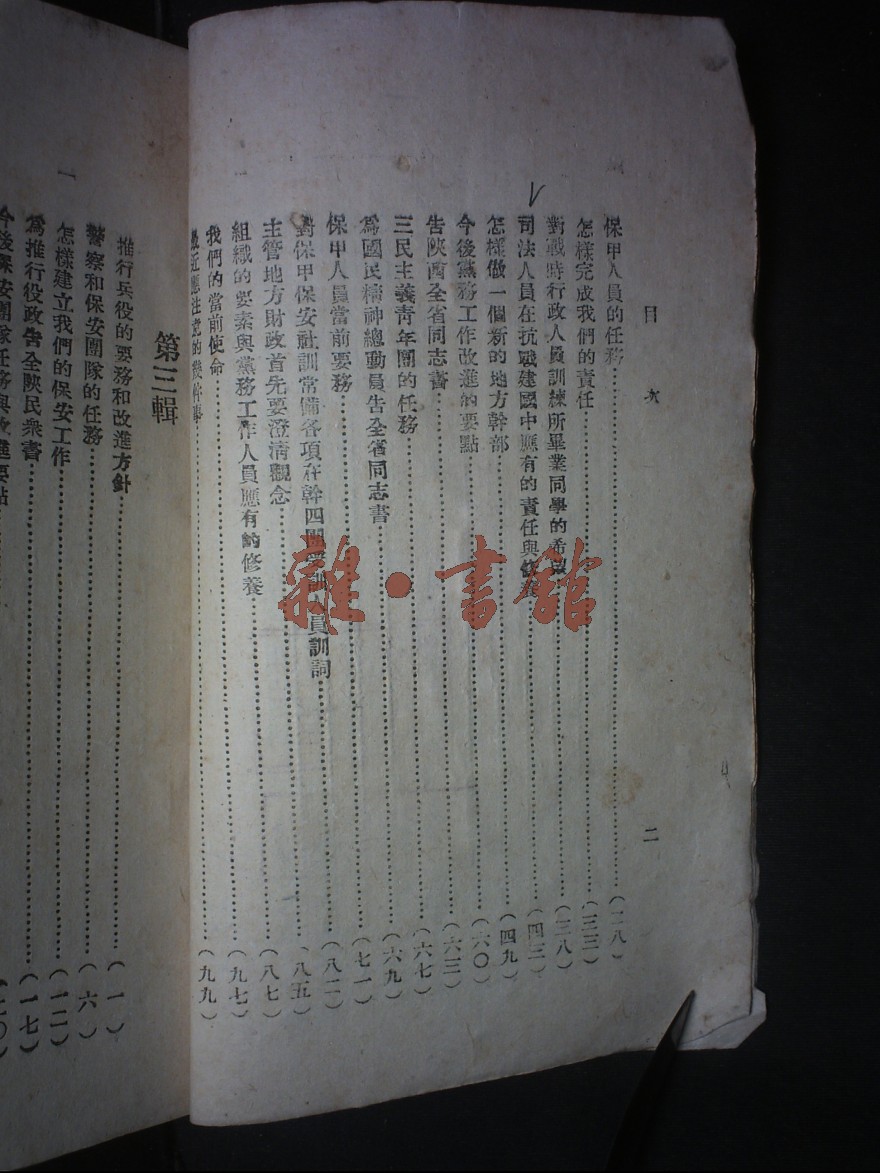 目次 二
保甲人員的任務……(二八)
怎樣完成我們的責任……(三三)
對戰時行政人員訓練所畢業同學的希望……(三八)
司法人員在抗戰建國中應有的責任與修養……(四三)
怎樣做一個新的地方幹部……(四九)
今後黨務工作改進的要點……(六〇)
告陝西全省同志書……(六三)
三民主義青年團的任務……(六七)
爲國民精神總動員告全省同志書……(六九)
保甲人員當前要務……(七一)
對保甲保安社訓常備各項在幹四團受訓人員訓詞……(八二)
主管地方財政首先要澄清觀念……(八五)
組織的要素與黨務工作人員應有的修養……(八七)
我們的當前使命……(九七)
最近應注意的幾件事……(九九)
第三輯
推行兵役的要務和改進方針……(一)
警察和保安團隊的任務……(六)
怎樣建立我們的保安工作……(一二)
爲推行役政告全陝民衆書……(一七)
今後保安團隊任務與改進要點……(二〇)
雜·書館